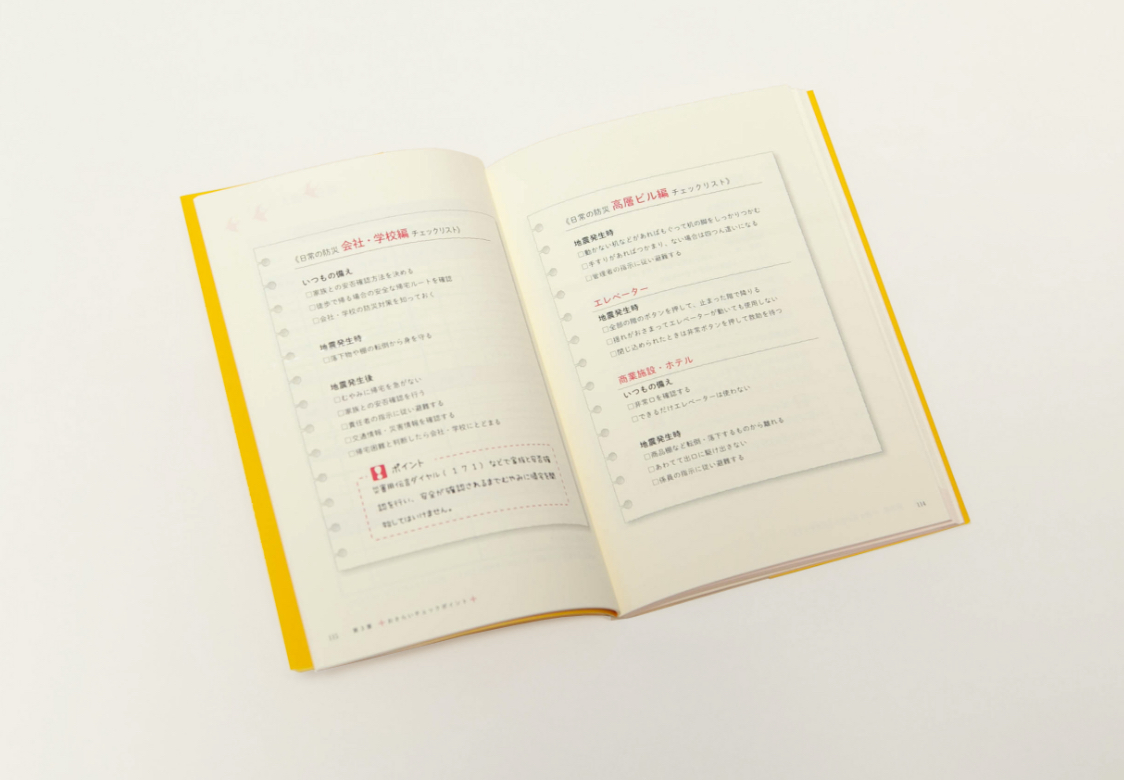 《日常の防災 会社・学校編 チェックリスト》
いつもの備え
□家族との安否確認方法を決める
□徒歩で帰る場合の安全な帰宅ルートを確認
□会社・学校の防災対策を知っておく
地震発生時
□落下物や棚の転倒から身を守る
地震発生後
□むやみに帰宅を急がない
□家族との安否確認を行う
□責任者の指示に従い避難する
□交通情報・災害情報を確認する
□帰宅困難と判断したら会社・学校にとどまる
ポイント
災害用伝言ダイヤル(171)などで家族と安否確
認を行い、安全が確認されるまでむやみに帰宅を開
始してはいけません。
第2章 おさらいチェックポイント
《日常の防災 高層ビル編 チェックリスト》
地震発生時
□動かない机などがあればもぐって机の脚をしっかりつかむ
□手すりがあればつかまり、ない場合は四つん這いになる
□管理者の指示に従い避難する
エレベーター
地震発生時
□全部の階のボタンを押して、止まった階で降りる
□揺れがおさまってエレベーターが動いても使用しない
□閉じ込められたときは非常ボタンを押して救助を待つ
商業施設・ホテル
いつもの備え
□非常口を確認する
□できるだけエレベーターは使わない
地震発生時
□商品棚など転倒・落下するものから離れる
□あわてて出口に駆け出さない
□係員の指示に従い避難する